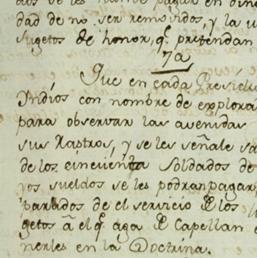 dad de no ser removidos, y la v
sugetos de honor, q. pretendan
7a
Que en cada Presidi
Yndios con nombre de explora
para observar las avenidas
sus Rastros, y se les señale sa
de los cincuenta Soldados de
yos sueldos se les podran pagar,
barbados de el servicio P los
getos â el q. aga P Capellan e
nerles en la Doctrina.